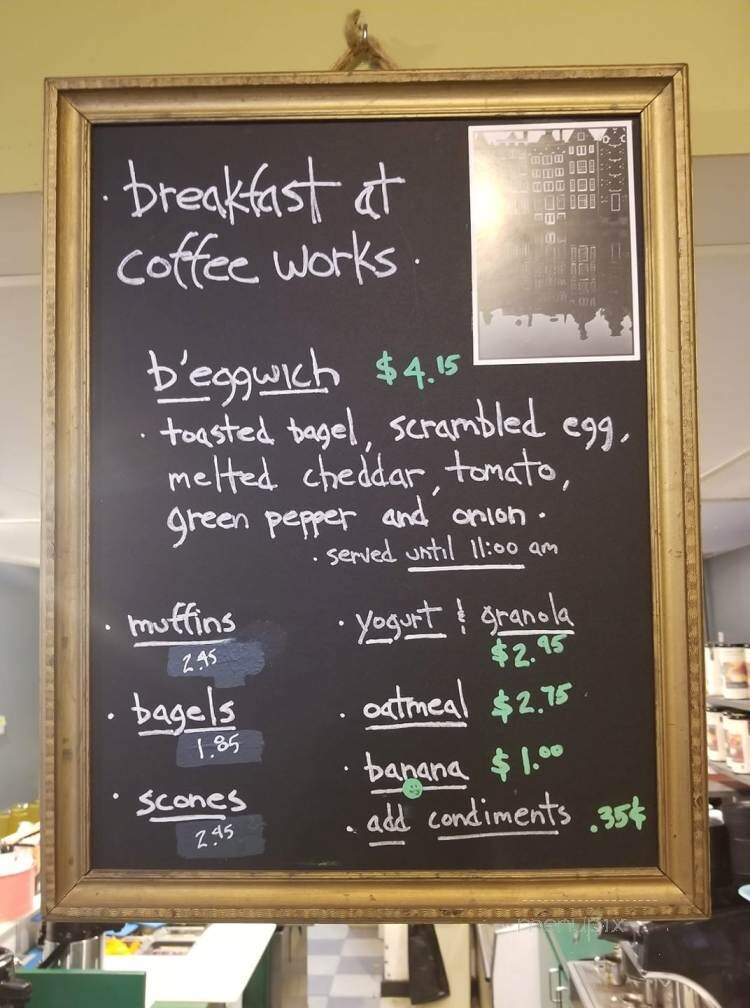 · breakfast at
coffee works ·
b'eggwich $4.15
· toasted bagel, scrambled egg,
melted cheddar, tomato,
green pepper and onion ·
· served until 11:00 am
· muffins
2.45
· bagels
1.85
· scones
2.45
· yogurt & granola
$2.95
· oatmeal $2.75
· banana $1.00
· add condiments .35¢
menupix